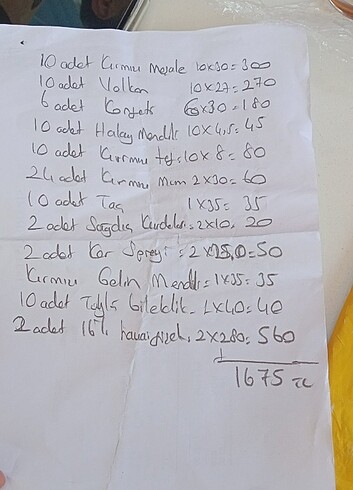 10 adet Kırmızı Meşale 10x30=300
10 adet Volkan 10x27=270
6 adet Konfeti 6x30=180
10 adet Halay Mendili 10x4,5=45
10 adet Kırmızı tef=10x8=80
24 adet Kırmızı Mum 2x30=60
10 adet Taç 1x35= 35
2 adet Sağdıç Kurdelesi=2x10, 20
2 adet Kar Spreyi=2x25,0=50
Kırmızı Gelin Mendili=1x35=35
10 adet bileklik=1x40=40
2 adet 16'lı havaifişek, 2x280=560
1675 TL